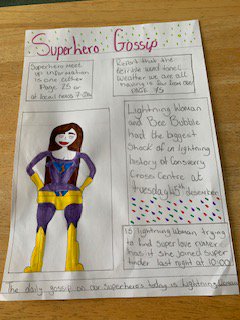 Superhero Gossip
Superhero Meet
up information
is one either
Page 25 or
at local news
Report that the
terrible wind and
weather we are all
having is
PAGE 45
Lightning Woman
and Bee Bubble
had the biggest
shock of in lightning
history at
Cross Centre at
tuesday
lightning woman trying
to find super love rumor
has it she joined super
tinder last night at 10:00
The daily gossip on our Superheros today is lightning woman